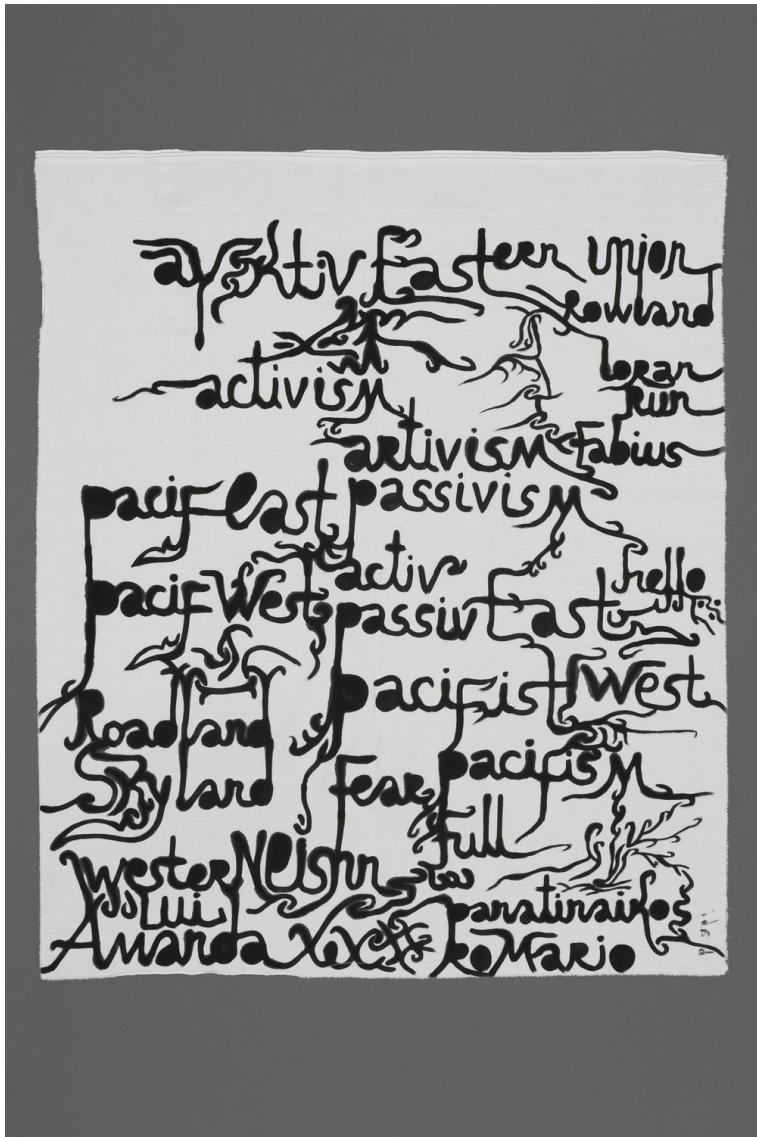 Eastern Union
Rowland
activism
Run
artivism Fabius
pacif East passivism
activ
hello
pacif West passiv East
pacifist West
Road land
Sky land Fear pacifism
full
wester
Lui panatinaikos
Amanda RoMario